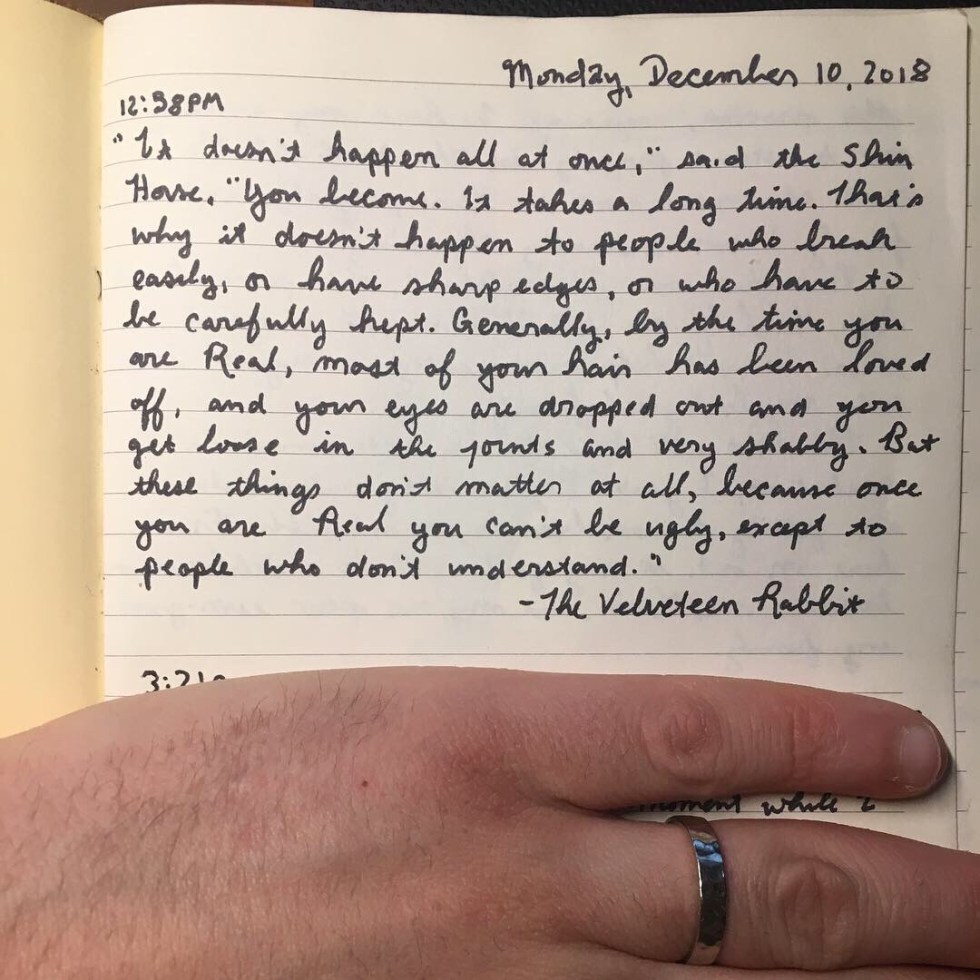 Monday, December 10, 2018
12:58PM
"It doesn't happen all at once," said the Skin
Horse. "You become. It takes a long time. That's
why it doesn't happen to people who break
easily, or have sharp edges, or who have to
be carefully kept. Generally, by the time you
are Real, most of your hair has been loved
off, and your eyes are dropped out and you
get loose in the joints and very shabby. But
these things don't matter at all, because once
you are Real you can't be ugly, except to
people who don't understand."
-The Velveteen Rabbit
3:21
moment while I